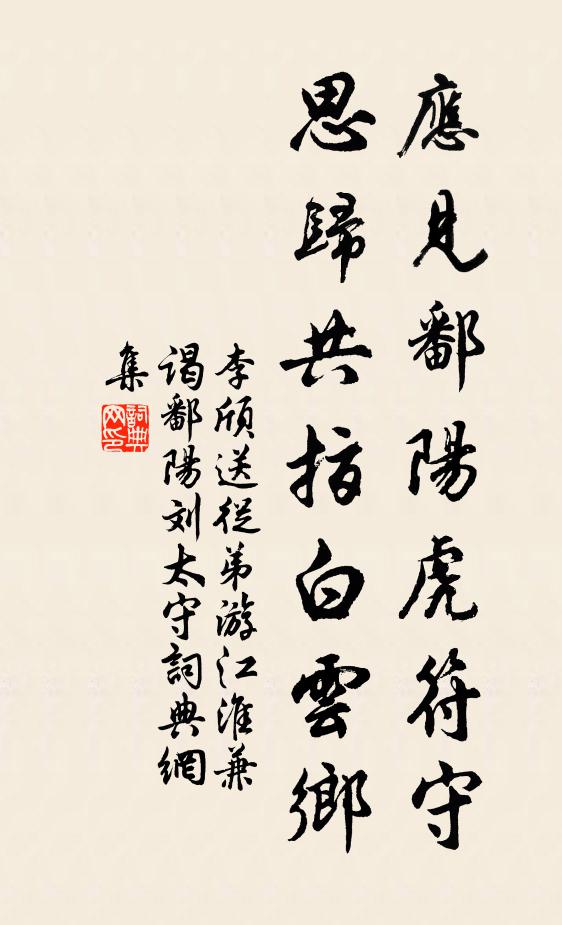 應見鄱陽虎符守
思歸共指白雲鄉
李頎送從弟游江淮兼
謁鄱陽刘太守詞典網
集
詞典网印